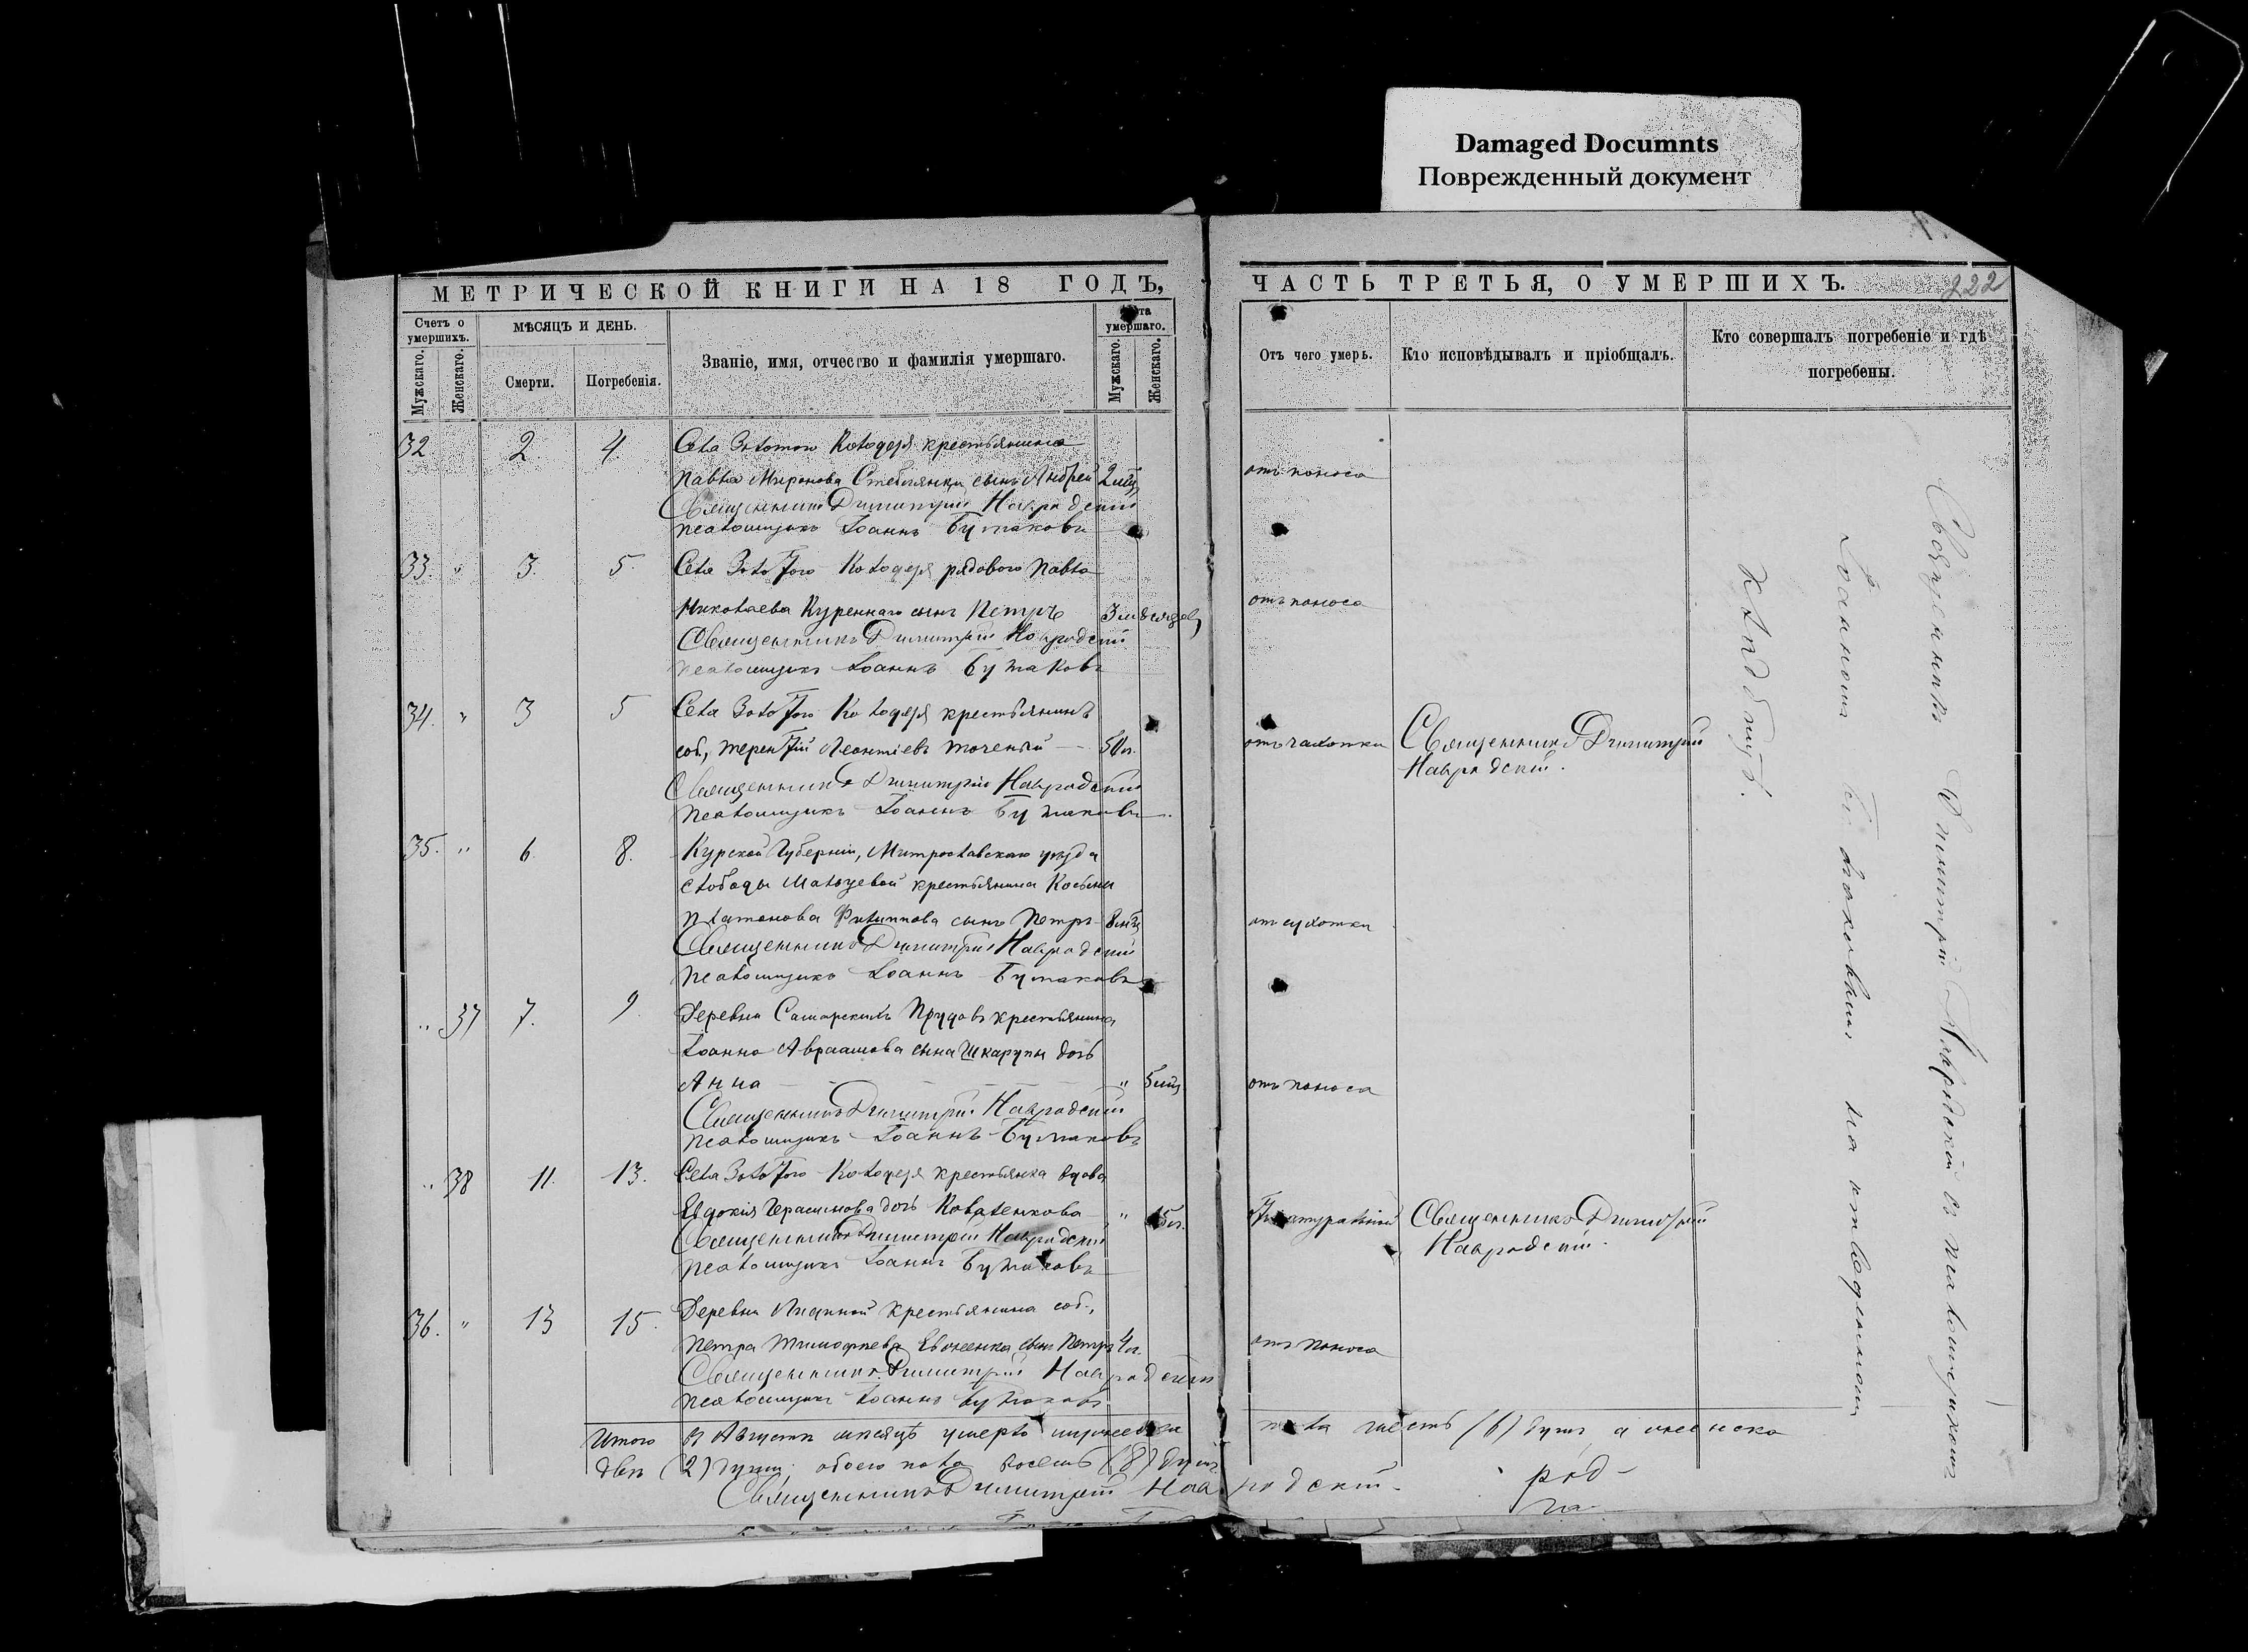 Damaged Documnts
Поврежденный документ
МЕТРИЧЕСКОЙ КНИГИ НА 18 ГОДЪ,
Счетъ о умершихъ.
Мужскаго.
Женскаго.
МѢСЯЦЪ И ДЕНЬ.
Смерти.
Погребенія.
Званіе, имя, отчество и фамилія умершаго.
умершаго.
Мужскаго.
Женскаго.
ЧАСТЬ ТРЕТЬЯ, О УМЕРШИХЪ.
222
Отъ чего умеръ.
Кто исповѣдывалъ и пріобщалъ.
Кто совершалъ погребеніе и гдѣ погребены.
32 2. 4. Села Золотого Колодезя крестьянина
Павла Миронова сынъ Андрей 2 мѣс отъ поноса
Священникъ Димитрій Навродскій
Псаломщикъ Іоаннъ Бутаковъ
33. " 3. 5. Села Золотого Колодезя рядового Павла
Николаева Куреннаго сынъ Петръ 3 мѣсяцев отъ поноса
Священникъ Димитрій Навродскій
Псаломщикъ Іоаннъ Бутаковъ
34. " 3 5 Села Золотого Колодезя крестьянинъ
соб., Терентій Леонтіевъ Точеный 50 л. отъ чахотки Священникъ Димитрій
Навродскій.
Священникъ Димитрій Навродскій
Псаломщикъ Іоаннъ Бутаковъ
35. " 6. 8. Курской Губерніи, уѣзда
слободы крестьянина Косьмы
Платонова Филиппова сынъ Петръ 8 мѣс отъ сухотки
Священникъ Димитрій Навродскій
Псаломщикъ Іоаннъ Бутаковъ
" 37 7. 9. Деревни Самарскихъ Прудовъ крестьянина
Іоанна Авраамова сына Шкарупы дочь
Анна " 5 мѣс отъ поноса
Священникъ Димитрій Навродскій
Псаломщикъ Іоаннъ Бутаковъ
" 38 11. 13. Села Золотого Колодезя крестьянка вдова
Евдокія Герасимова дочь Коваленкова " Священникъ Димитрій
Навродскій.
Священникъ Димитрій Навродскій
Псаломщикъ Іоаннъ Бутаковъ
36. " 13 15. Деревни крестьянина соб.,
Петра Тимофѣева сынъ Петръ 4 г. отъ поноса
Священникъ Димитрій Навродскій
Псаломщикъ Іоаннъ Бутаковъ
Итого въ Августѣ мѣсяцѣ умерло мужеска пола шесть (6) душъ, а женска
двѣ (2) души; обоего пола восемь (8) душъ
Священникъ Димитрій Навродскій.
Священникъ Димитрій Навродскій съ псаломщикомъ
Іоанномъ Бутаковымъ на приходскомъ
кладбищѣ.